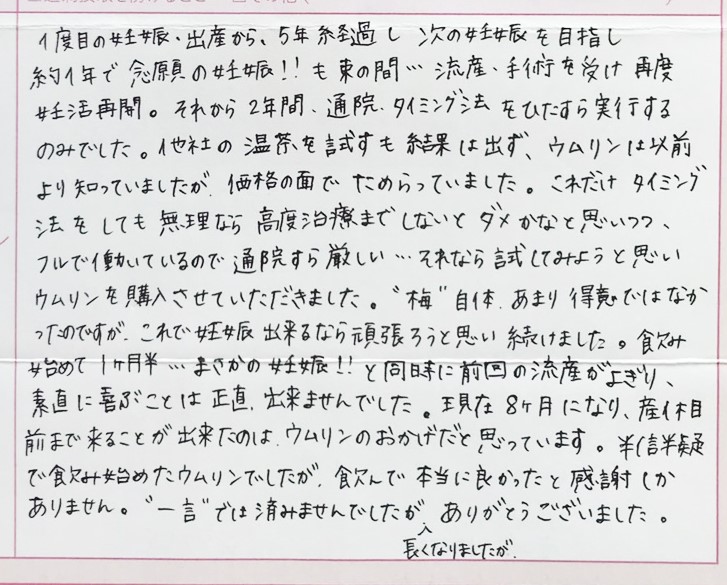 1度目の妊娠・出産から、5年経過し 次の妊娠を目指し
約1年で念願の妊娠!!も束の間… 流産、手術を受け再度
妊活再開。それから2年間、通院、タイミング法をひたすら実行する
のみでした。他社の温茶を試すも結果は出ず、ウムリンは以前
より知っていましたが、価格の面でためらっていました。これだけタイミング
法をしても無理なら高度治療までしないとダメかなと思いつつ、
フルで働いているので通院すら厳しい…それなら試してみようと思い
ウムリンを購入させていただきました。"梅"自体、あまり得意ではなか
ったのですが、これで妊娠出来るなら頑張ろうと思い続けました。飲み
始めて1ヶ月半…まさかの妊娠!!と同時に前回の流産がよぎり、
素直に喜ぶことは正直、出来ませんでした。現在8ヶ月になり、産休目
前まで来ることが出来たのは、ウムリンのおかげだと思っています。半信半疑
で飲み始めたウムリンでしたが、飲んで本当に良かったと感謝しか
ありません。"一言"では済みませんでしたが、ありがとうございました。
長くなりましたが、